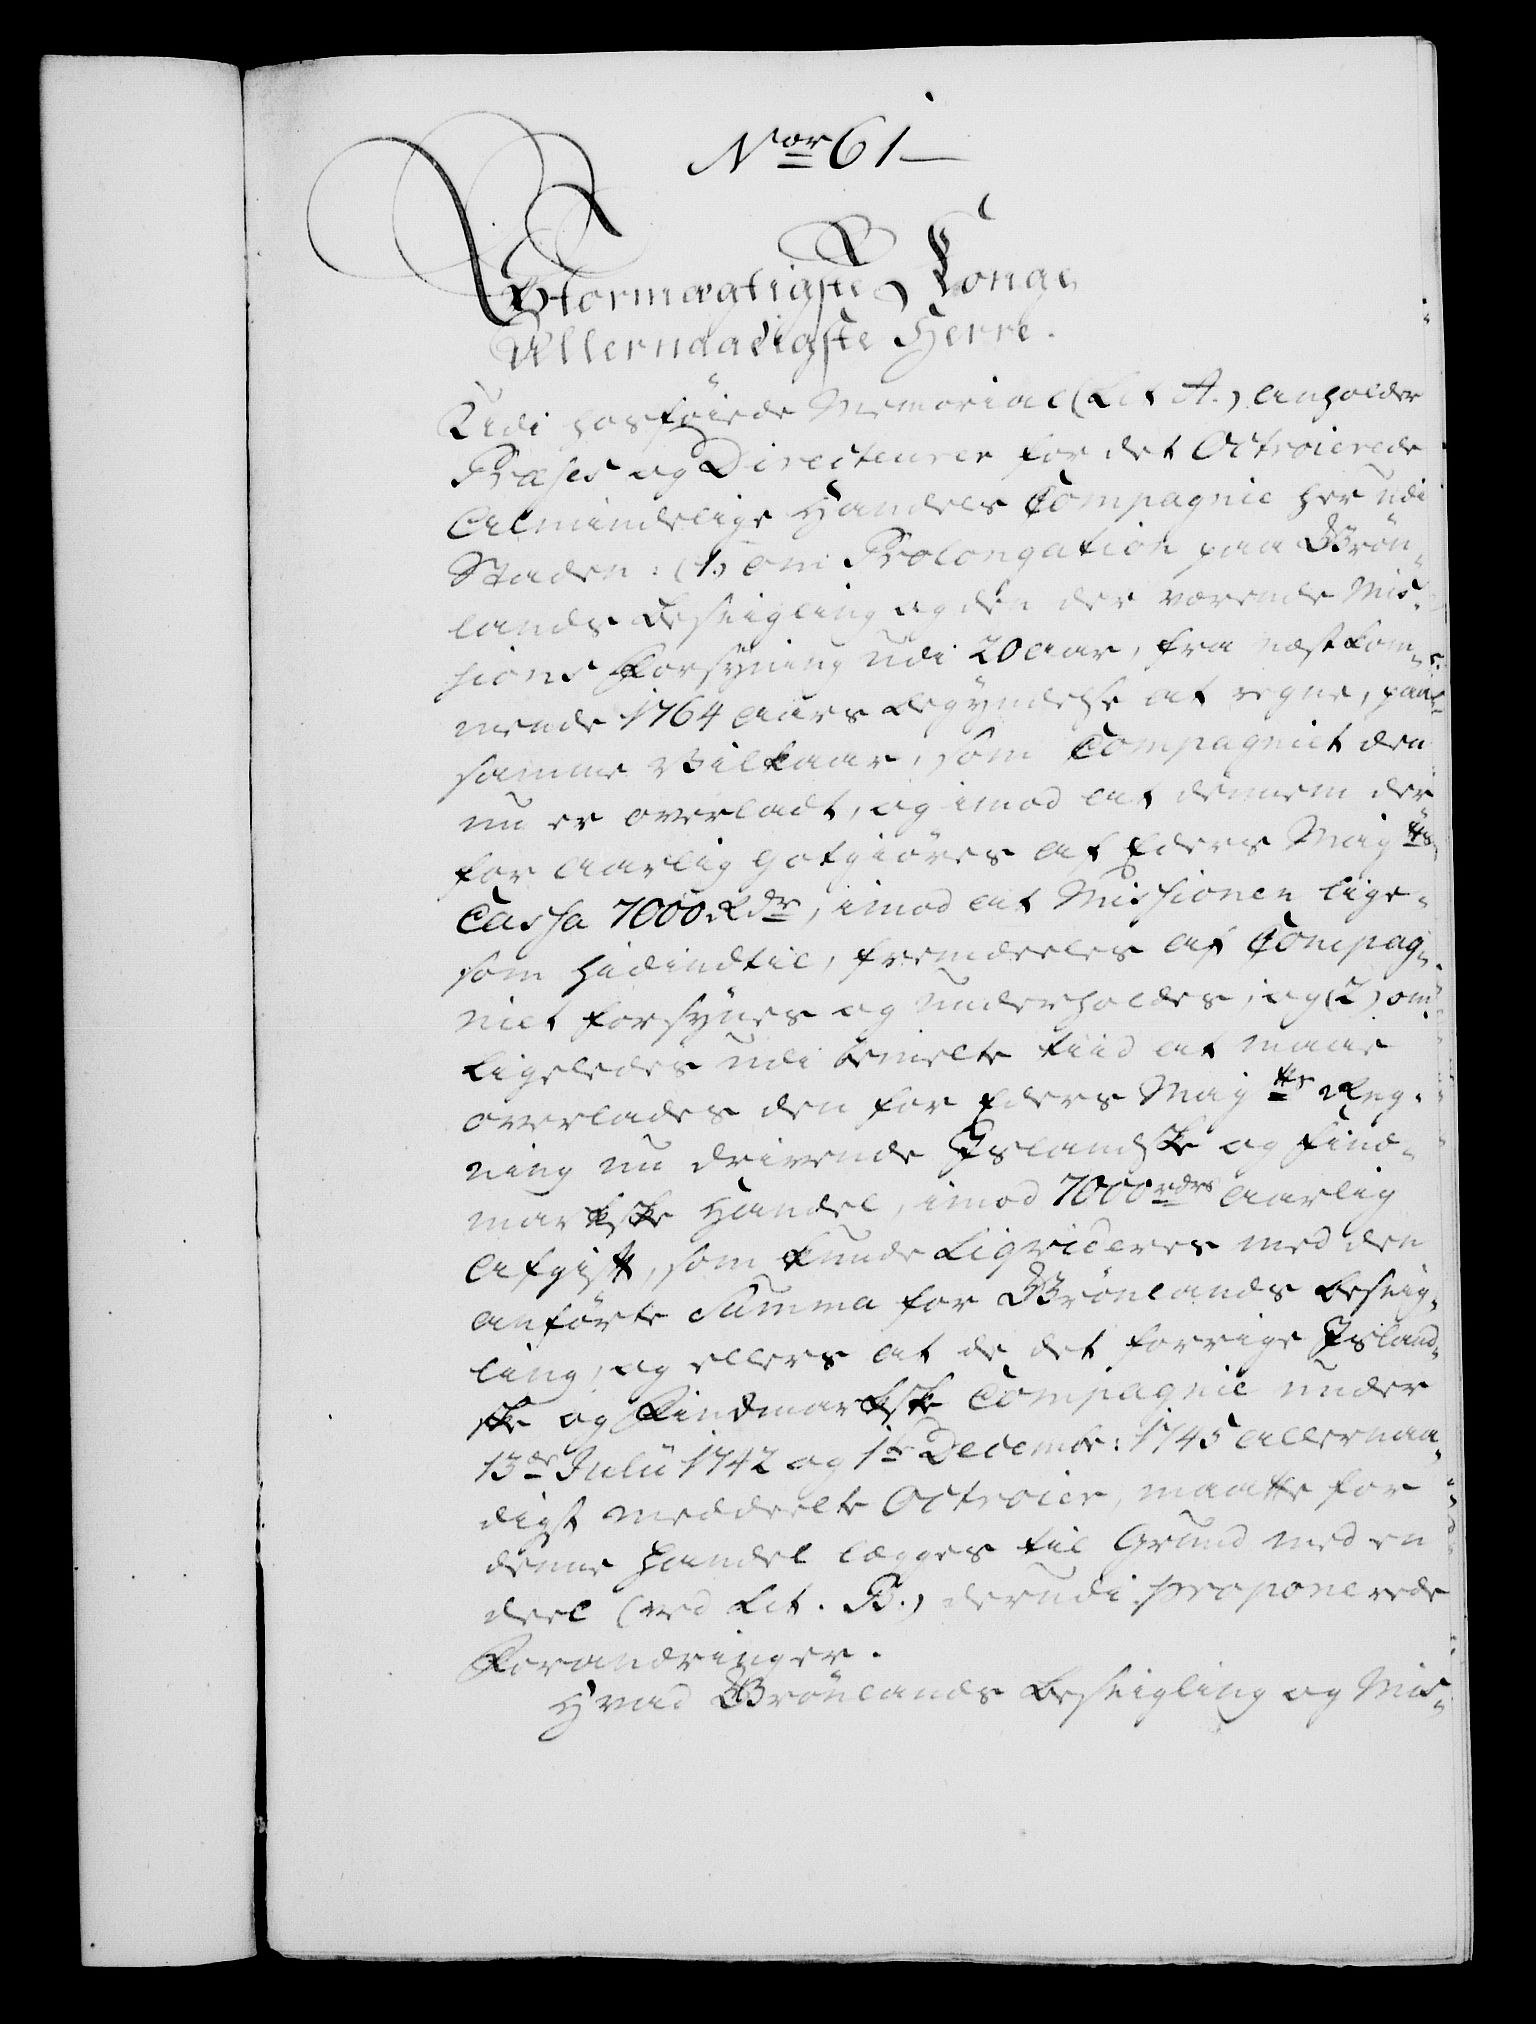 Nor 61
Stormægtigste Konge,
Allernaadigste Herre.
Udi hosføiede Memorial (Lit A.) anholder
Præses og Directeurer for det Octroierede
Almindelige Handels Compagnie her udi
Staden: (1) om Prolongation paa Grön-
lands Beseigling og den der værende Mis-
sions Forsyning udi 20 aar, fra næstkom-
mende 1764 aars begyndelse at regne, paa
samme Vilkaar, som Compagniet den
nu er overladt, og imod at dennem der
for aarlig godtgiöres af Eders Mayts
Cassa 7000 Rdr, imod at Missionen lige-
som hidindtil, fremdeeles af Compag-
niet forsynes og underholdes; og (2) om
ligeledes udi bemelte tiid at maae
overlades den for Eders Mayts Reg-
ning nu drivende Islandske og Find-
markske Handel, imod 7000 rdrs aarlig
Afgift, som kunde liqvideres med den
anförte Summa for Grönlands beseig-
ling, og ellers at de det forrige Island-
ske og Findmarkske Compagnie under
13de Julii 1742 og 1te Decembr: 1745 allernaa-
digst meddeelte Octroier, maatte for
denne Handel lægges til Grund med en
deel (ved Lit. B.) derudi proponerede
Forandringer.
Hvad Grönlands Beseigling og Mis-